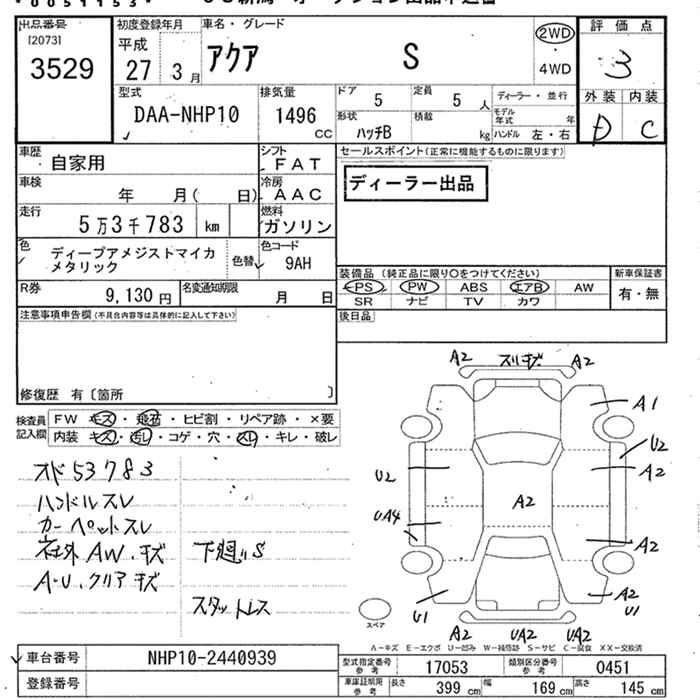 0051153
出品番号
[2073]
3529
初度登録年月
平成
27 3月
車名・グレード
アクア S
2WD
4WD
評価点
3
外装 内装
D C
型式
DAA-NHP10
排気量
1496 CC
ドア 5
定員 5 人
ディーラー・並行
形状 ハッチB
積載 kg
モデル年式 年
ハンドル 左・右
車歴
自家用
シフト
FAT
車検
年 月( 日)
冷房
AAC
走行
5万3千783 km
燃料
ガソリン
色
ディープアメジストマイカ
メタリック
色替
色コード
9AH
R券
9,130円
名変通知期限
月 日
セールスポイント(正常に機能するものに限ります)
ディーラー出品
装備品 (純正品に限り○をつけてください)
新車保証書
PS PW ABS エアB AW
有・無
SR ナビ TV カワ
後日品
注意事項申告欄(不具合内容等は具体的に記入して下さい)
修復歴 有〔箇所 〕
検査員
記入欄
FW キズ・飛石・ヒビ割・リペア跡・×要
内装 キズ・汚レ・コゲ・穴・スレ・キレ・破レ
オド53783
ハンドルスレ
カーペットスレ
社外AW.キズ 下廻りS
A-U.クリアキズ
スタットレス
A2 スリキズ A2
A1
U2
U2 A2
A2
UA4
A2
A2
U1 U1
A2 UA2 A2
スペア
A-キズ E-エクボ U-凹み W-補修跡 S-サビ C-腐食 XX-交換済
車台番号
NHP10-2440939
登録番号
型式指定番号 参考 17053
類別区分番号 参考 0451
車庫証明用 参考 長さ 399 cm 幅 169 cm 高さ 145 cm